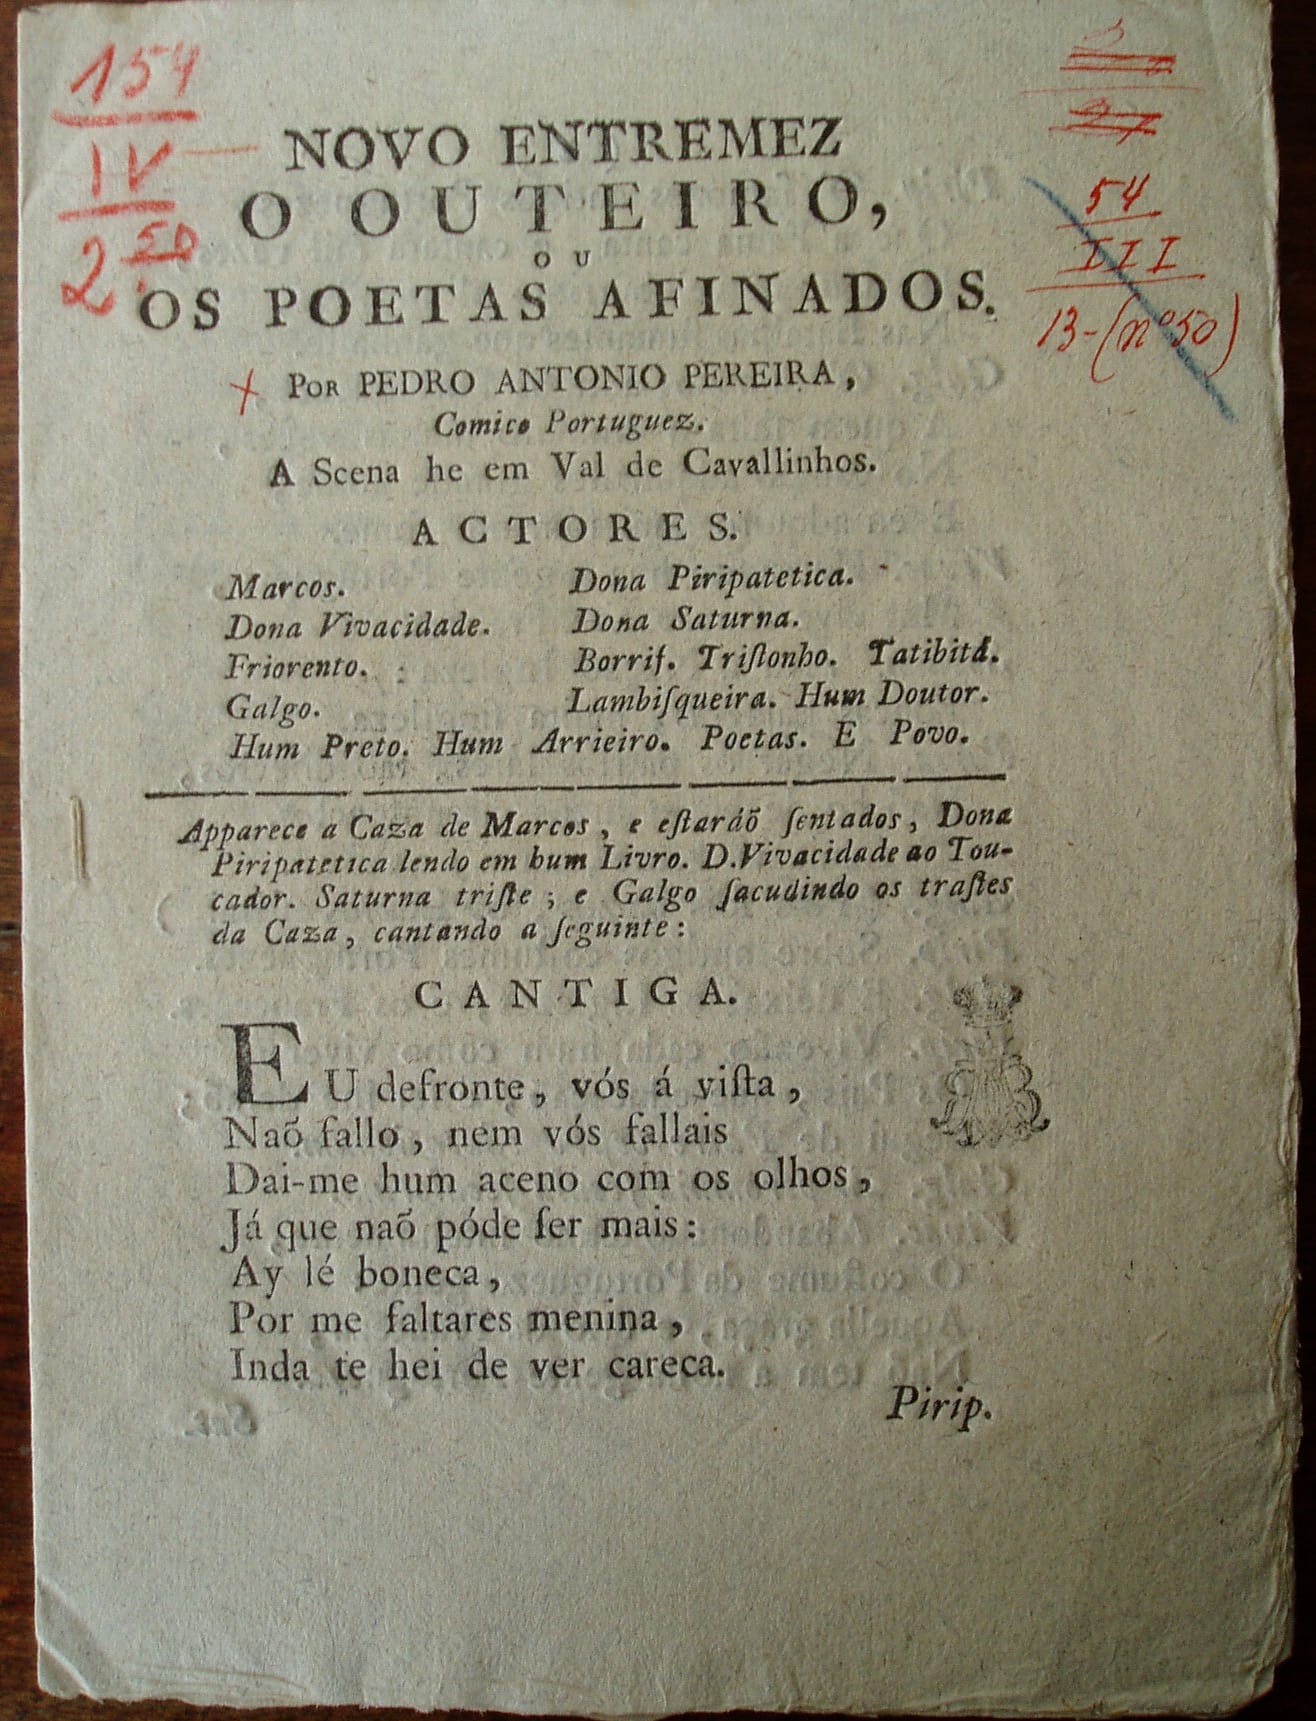 154
IV
2.50
54
III
13-(nº50)
NOVO ENTREMEZ
O OUTEIRO,
OU
OS POETAS AFINADOS.
POR PEDRO ANTONIO PEREIRA,
Comico Portuguez.
A Scena he em Val de Cavallinhos.
ACTORES.
Marcos. Dona Piripatetica.
Dona Vivacidade. Dona Saturna.
Friorento. Borrif. Triſtonho. Tatibitá.
Galgo. Lambiſqueira. Hum Doutor.
Hum Preto. Hum Arrieiro. Poetas. E Povo.
Apparece a Caza de Marcos, e eſtaráõ ſentados, Dona
Piripatetica lendo em hum Livro. D. Vivacidade ao Tou-
cador. Saturna triſte; e Galgo ſacudindo os traſtes
da Caza, cantando a ſeguinte:
CANTIGA.
EU defronte, vós á viſta,
Naõ fallo, nem vós fallais
Dai-me hum aceno com os olhos,
Já que naõ póde ſer mais:
Ay lé boneca,
Por me faltares menina,
Inda te hei de ver careca.
Pirip.